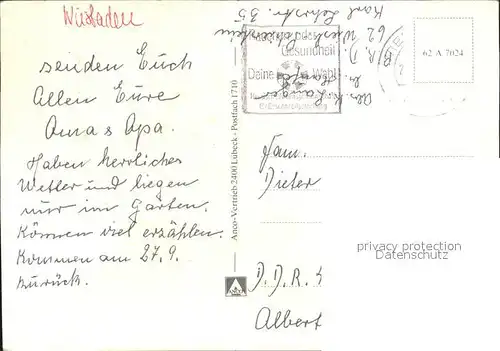 Wiesbaden
senden Euch
Allen Eure
Oma & Opa.
Haben herrliches
Wetter und liegen
nur im Garten.
Können viel erzählen.
Kommen am 27.9.
zurück.
Anco-Vertrieb 2400 Lübeck · Postfach 1710
ANCO
Karl Lehrstr. 35
62 Wiesb.
B.R.D.
Abs. K. Langer
Gesundheit
Deine Wahl
62 A 7024
Fam.
Dieter
D.D.R.
Albert
privacy protection
Datenschutz